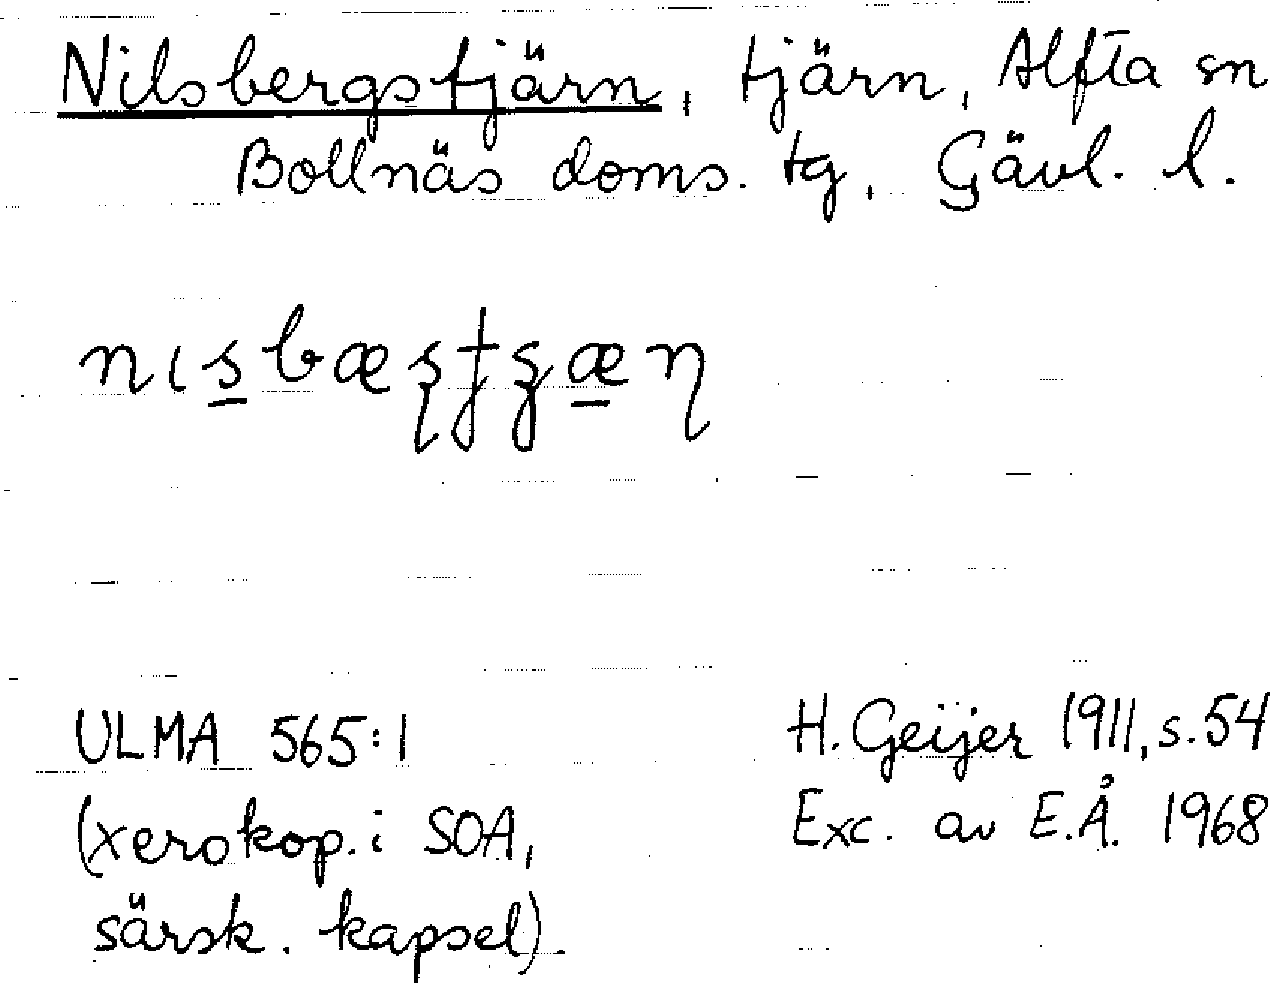 Nilsbergstjärn, tjärn, Alfta sn
Bollnäs doms. tg, Gävl. l.
ULMA 565:1
(xerokop. i SOA,
särsk. kapsel).
H. Geijer 1911, s. 54
Exc. av E.Å. 1968